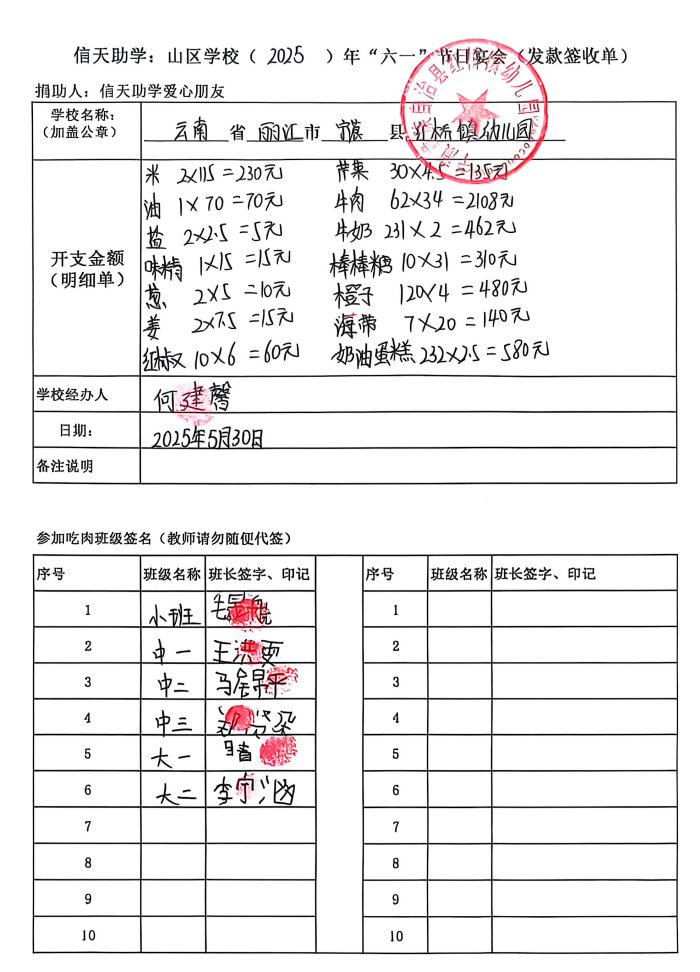 信天助学：山区学校（ 2025 ）年“六一”节日宴会（发款签收单）
捐助人：信天助学爱心朋友
学校名称：（加盖公章） 云南 省 丽江 市 宁蒗 县 红桥镇幼儿园
开支金额（明细单）
米 2×115=230元 芹菜 30×4.5=135元
油 1×70=70元 牛肉 62×34=2108元
盐 2×2.5=5元 牛奶 231×2=462元
味精 1×15=15元 棒棒糖 10×31=310元
葱 2×5=10元 橙子 120×4=480元
姜 2×7.5=15元 海带 7×20=140元
红椒 10×6=60元 奶油蛋糕 232×2.5=580元
学校经办人 何建馨
日期： 2025年5月30日
备注说明
参加吃肉班级签名（教师请勿随便代签）
序号 班级名称 班长签字、印记 序号 班级名称 班长签字、印记
1 小班 1
2 中一 王洪雯 2
3 中二 3
4 中三 4
5 大一 5
6 大二 6
7 7
8 8
9 9
10 10